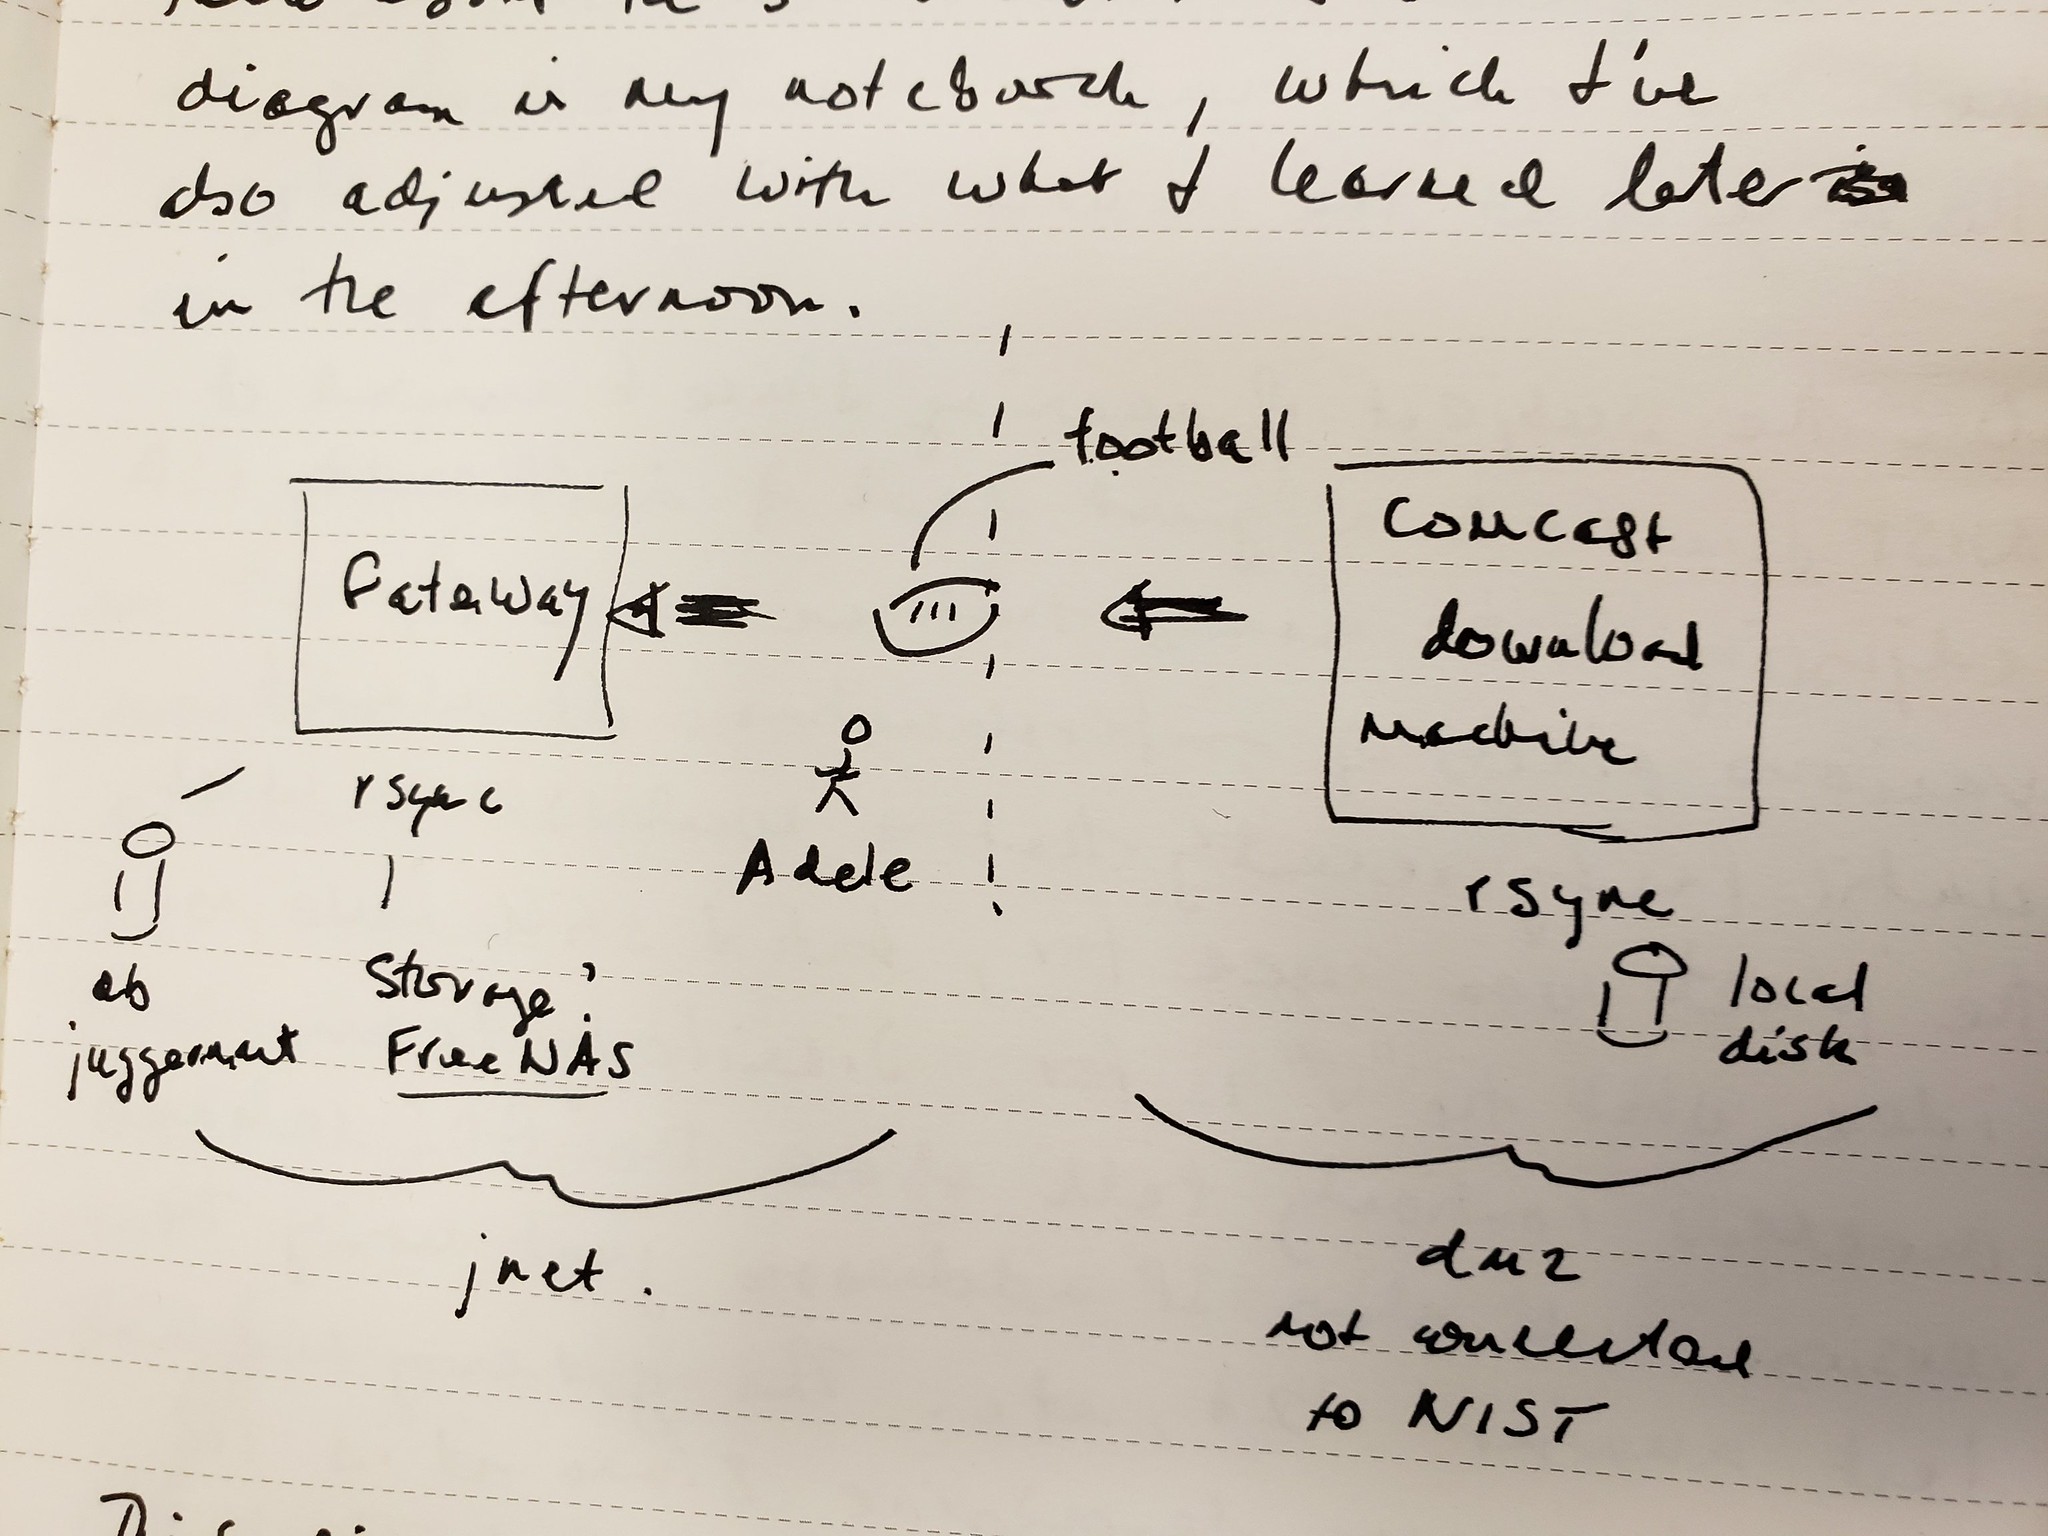 diagram in my notebook, which I've
also adjusted with what I learned later
in the afternoon.
football
Gateway
Comcast
download
machine
rsync
Adele
rsync
ab
juggernaut
Storage?
FreeNAS
local
disk
jnet.
dmz
not connected
to NIST